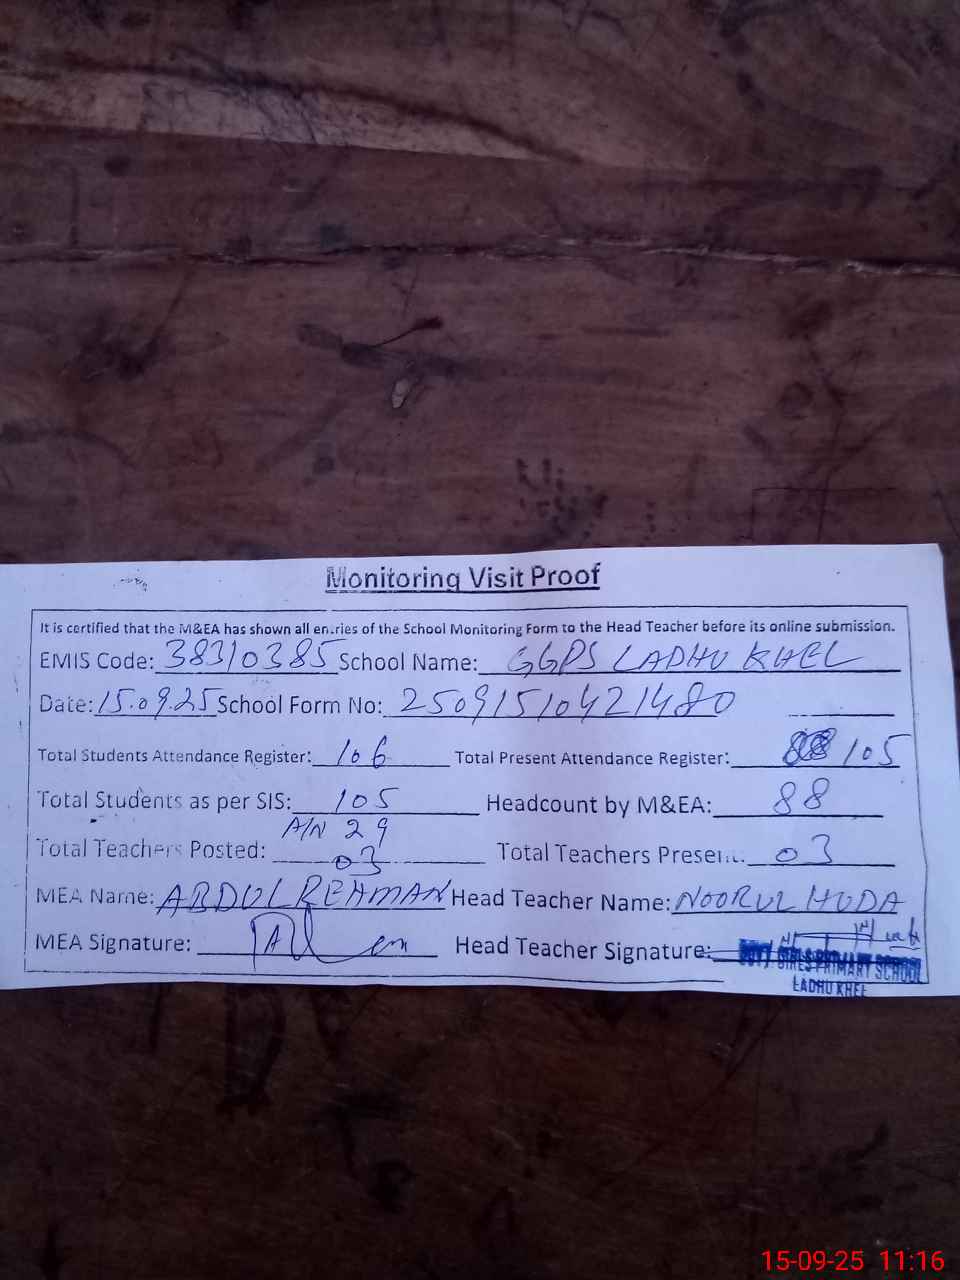 Monitoring Visit Proof
It is certified that the M&EA has shown all entries of the School Monitoring Form to the Head Teacher before its online submission.
EMIS Code: 38310385 School Name: GGPS LADHU KHEL
Date: 15.09.25 School Form No: 25091510421480
Total Students Attendance Register: 106 Total Present Attendance Register: 105
Total Students as per SIS: 105 Headcount by M&EA: 88
A/N 29
Total Teachers Posted: 03 Total Teachers Present: 03
MEA Name: ABDUL REHMAN Head Teacher Name: NOORUL HUDA
MEA Signature: Head Teacher Signature:
GOVT GIRLS PRIMARY SCHOOL
LADHU KHEL
15-09-25 11:16